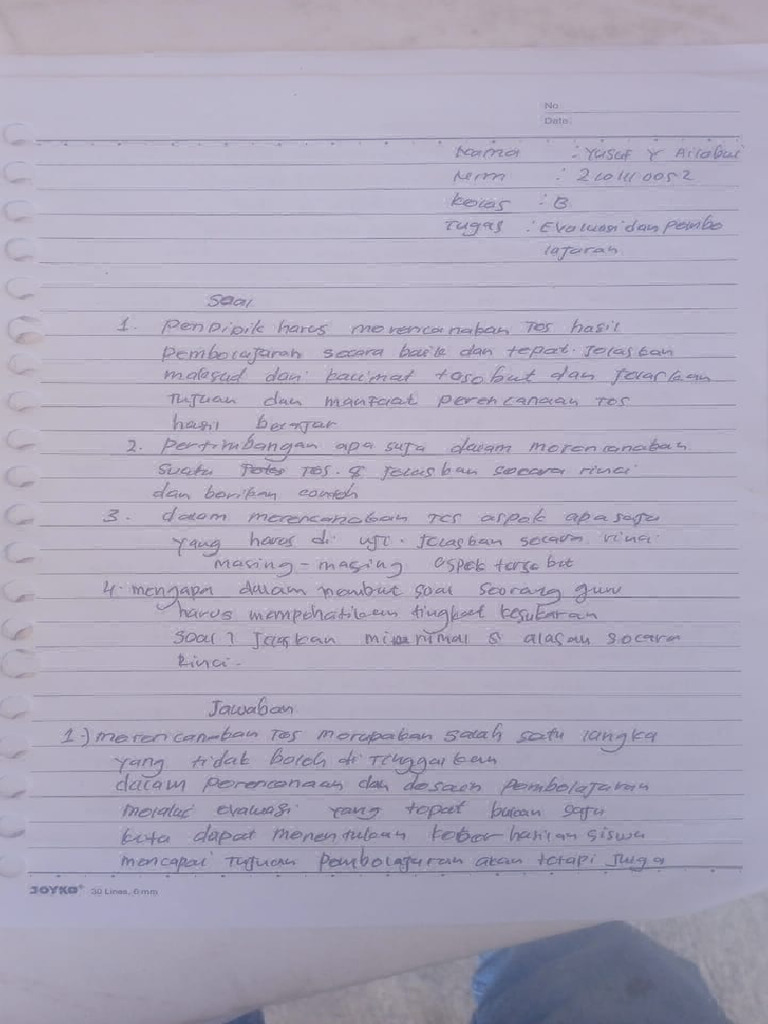 No.
Date.
Nama : Yusuf Y
Nim :
Kelas : B
Tugas : Evaluasi dan pembe
lajaran
Soal
1. Pendidik harus merencanakan Tes hasil
Pembelajaran secara baik dan tepat. Jelaskan
maksud dari kalimat tesebut dan jelaskan
Tujuan dan manfaat perencanaan Tes
hasil berajar
2. Pertimbangan apa saja dalam merencanakan
suatu Tes. & jelaskan secara rinci
dan berikan contoh
3. dalam merencanakan Tes aspek apa saja
yang harus di uji. jelaskan secara rinci
masing-masing aspek terse but
4. mengapa dalam membut soal seorang guru
harus tingkat kesukaran
soal ? minimal 5 alasan secara
Rinci.
Jawaban
1.) merencanakan Tes merupakan salah satu langka
yang tidak boleh di Tinggalkan
dalam perencanaan dan desain Pembelajaran
melalui evaluasi yang tepat bukan saja
kita dapat menentukan keber hasilan siswa
mencapai Tujuan Pembelajaran akan tetapi juga
JOYKO 30 Lines, 6 mm